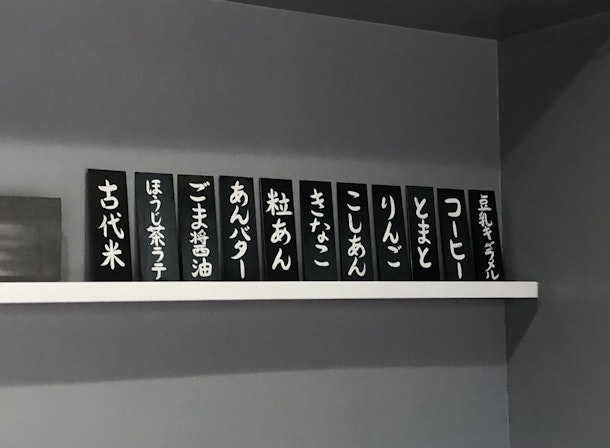 古代米
ほうじ茶ラテ
ごま醤油
あんバター
粒あん
きなこ
こしあん
りんご
とまと
コーヒー
豆乳キャラメル